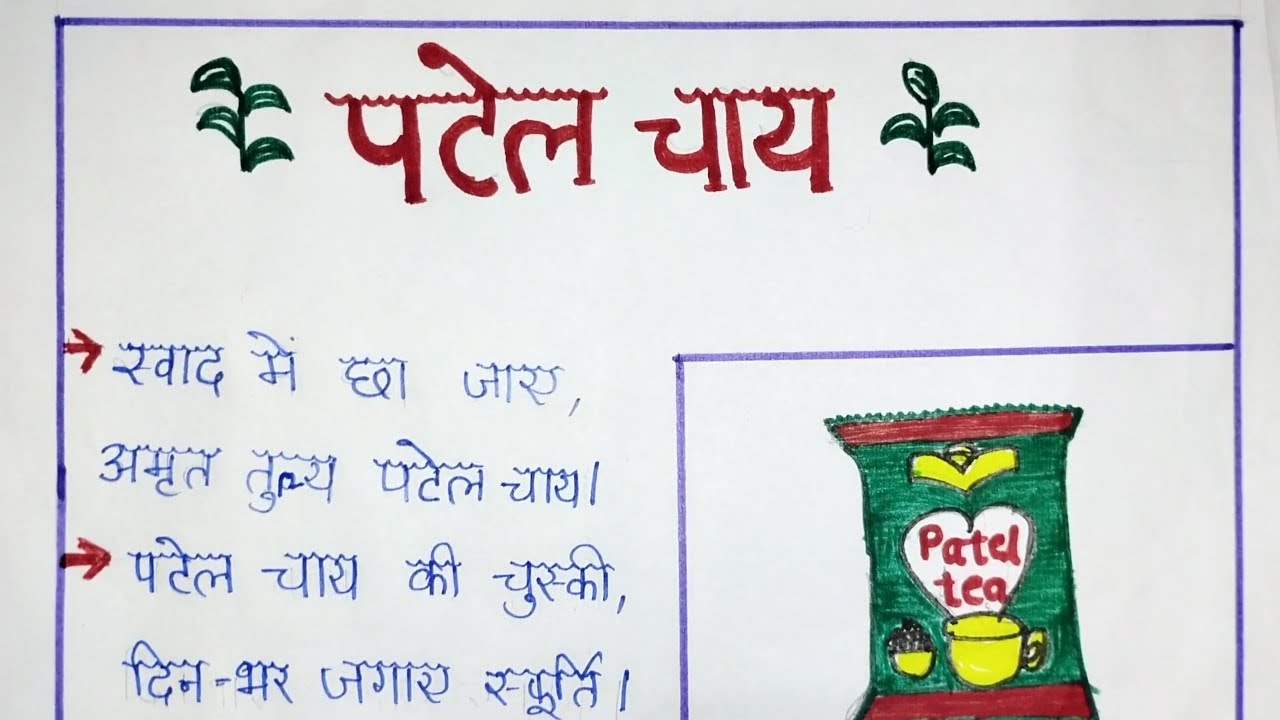 पटेल चाय
→ स्वाद में छा जाए,
अमृत तुल्य पटेल चाय।
→ पटेल चाय की चुस्की,
दिन-भर जगाए स्फूर्ति।
Patel
tea